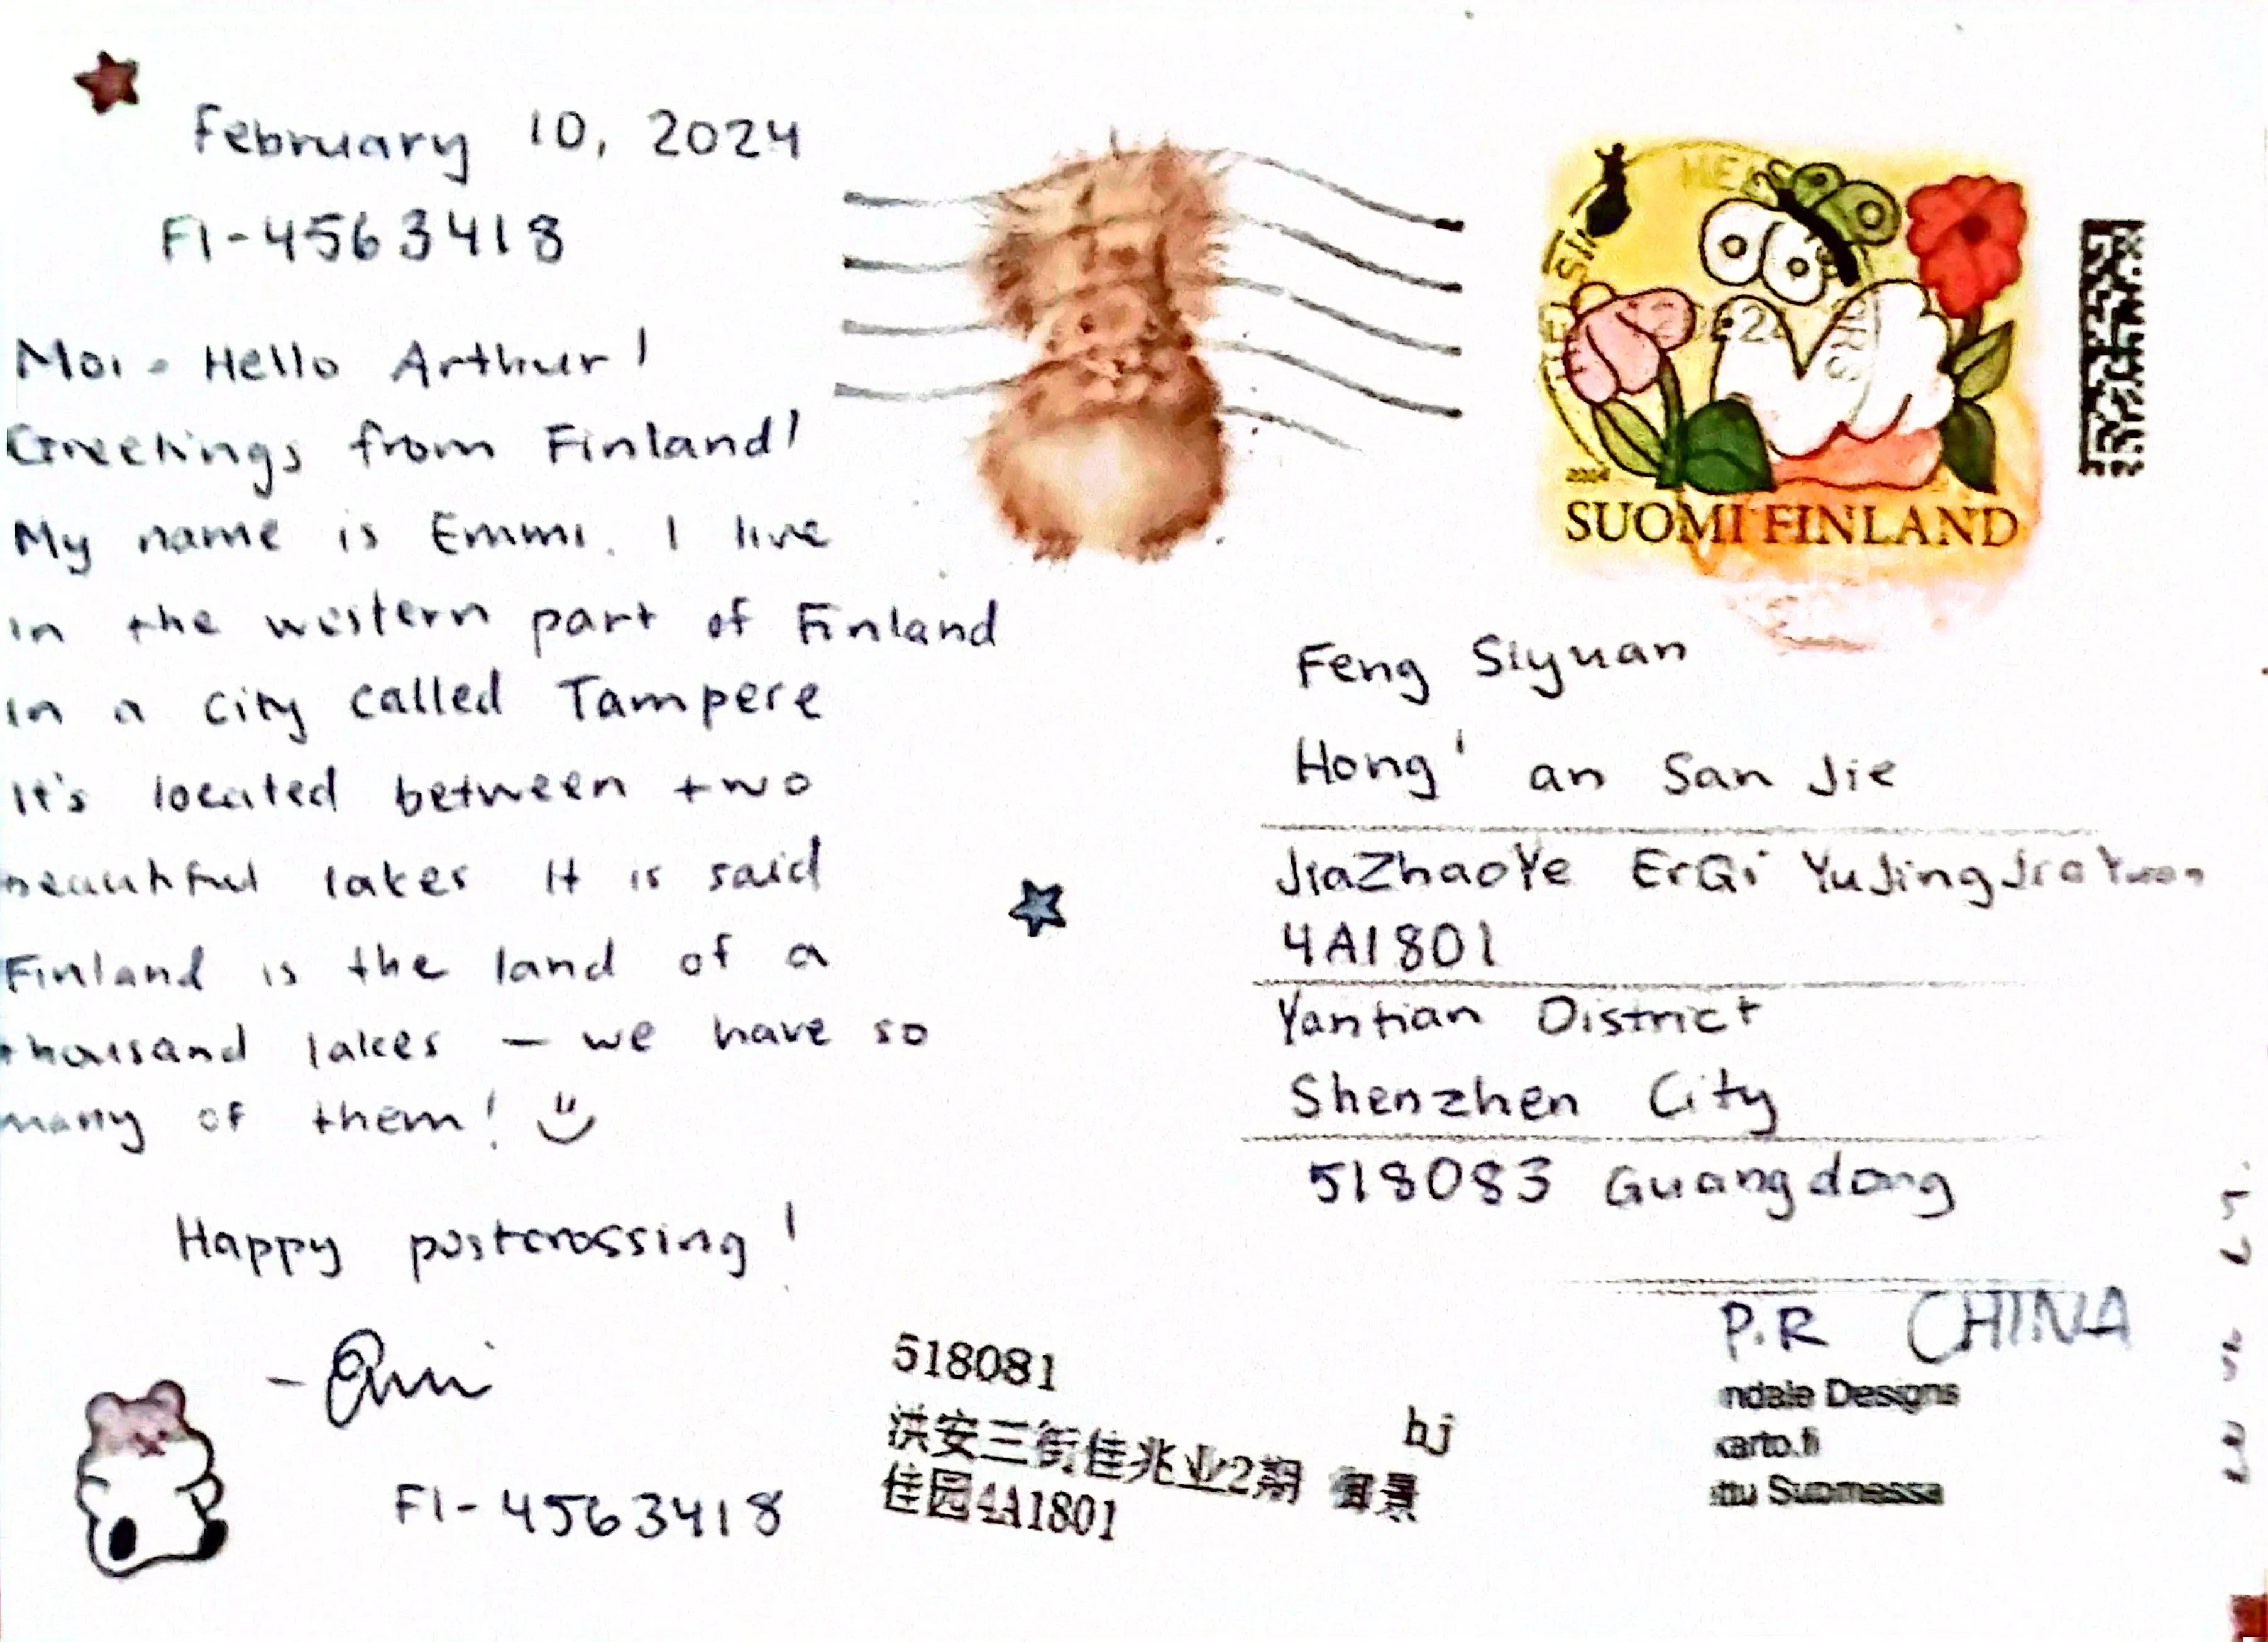 February 10, 2024
FI-4563418
Moi - Hello Arthur!
Greetings from Finland!
My name is Emmi. I live
in the western part of Finland
in a city called Tampere
It's located between two
beautiful lakes It is said
Finland is the land of a
thousand lakes – we have so
many of them!
Happy postcrossing!
- Emmi
FI-4563418
HELSINKI
2024
SUOMI FINLAND
Feng Siyuan
Hong' an San Jie
JiaZhaoYe ErQi YuJingJiaYuan
4A1801
Yantian District
Shenzhen City
518083 Guangdong
P.R CHINA
ndale Designs
karto.fi
ttu Suomessa
518081
bj
洪安三街佳兆业2期 御景
佳园4A1801